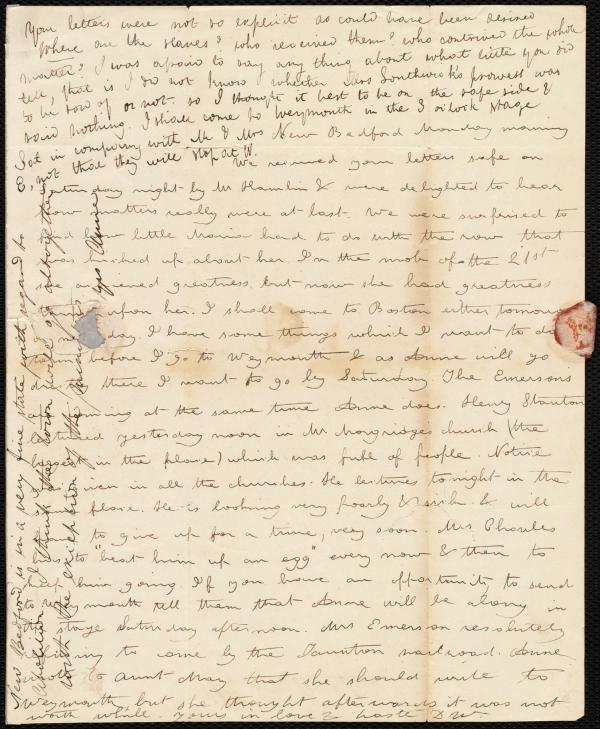 Your letters were not so explicit as could have been desired
Where are the slaves? who received them? who contrived the whole
matter? I was afraid to say any thing about what little you did
tell, that is I did not know whether Miss Southwick's prowess was
to be told of or not. so I thought it best to be on the safe side &
said nothing. I shall come to Weymouth in the 3 o'clock stage
Sat in company with Mr & Mrs
E, not that they will stop at W.
New Bedford Monday morning
We received your letters safe on
Saturday night by Mr Hamlin & were delighted to hear
how matters really were at last. We were surprised to
find how little Maria had to do with the row that
was kicked up about her. In the mob of the 21st
she achieved greatness but now she had greatness
upon her. I shall come to Boston either tomorrow
or day. I have some things which I want to do
before I go to Weymouth & as Anne will go
directly there I want to go by Saturday. The Emersons
are coming at the same time Anne does. Henry Stanton
lectured yesterday noon in Mr Morgridge's church (the
largest in the place) which was full of people. Notice
was given in all the churches. He lectures tonight in the
place. He is looking very poorly & sick. & will
to give up for a time, very soon. Mrs Charles
to "beat him up an egg" every now & then to
keep him going. If you have an opportunity to send
to Weymouth tell them that Anne will be along in
the stage Saturday afternoon. Mrs Emerson resolutely
to come by the Taunton railroad. Anne
to Aunt Mary that she should write to
Weymouth, but she thought afterwards it was not
worth while. Yours in love & haste D W
New Bedford is in a very fine state with regard to
Abolition. I think the town will go altogether
with the exception of the